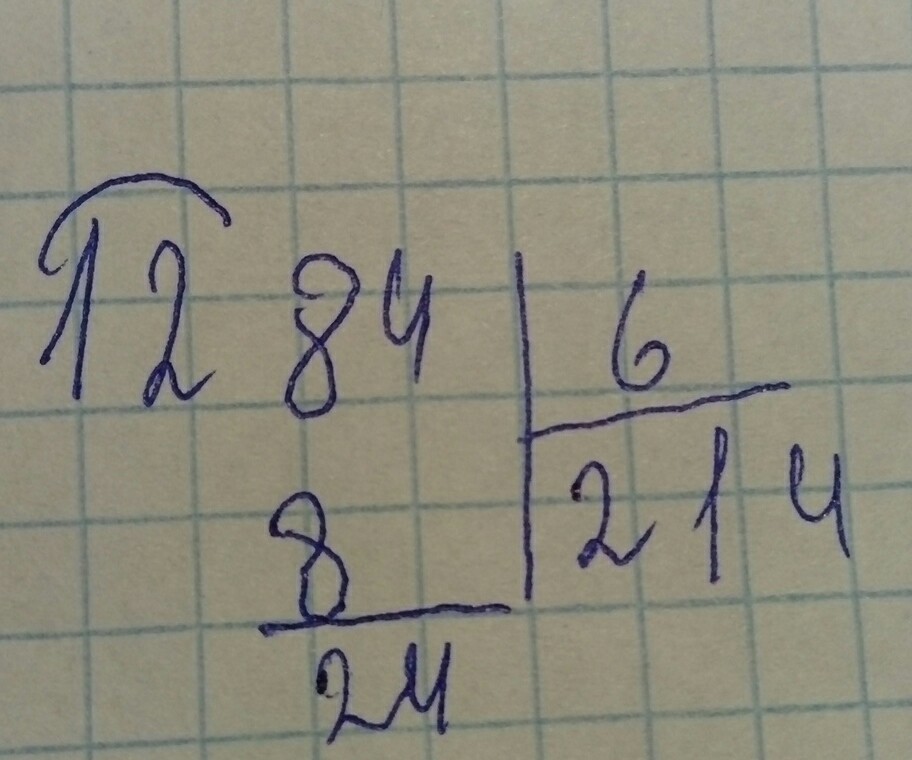 1284 6
214
8
24